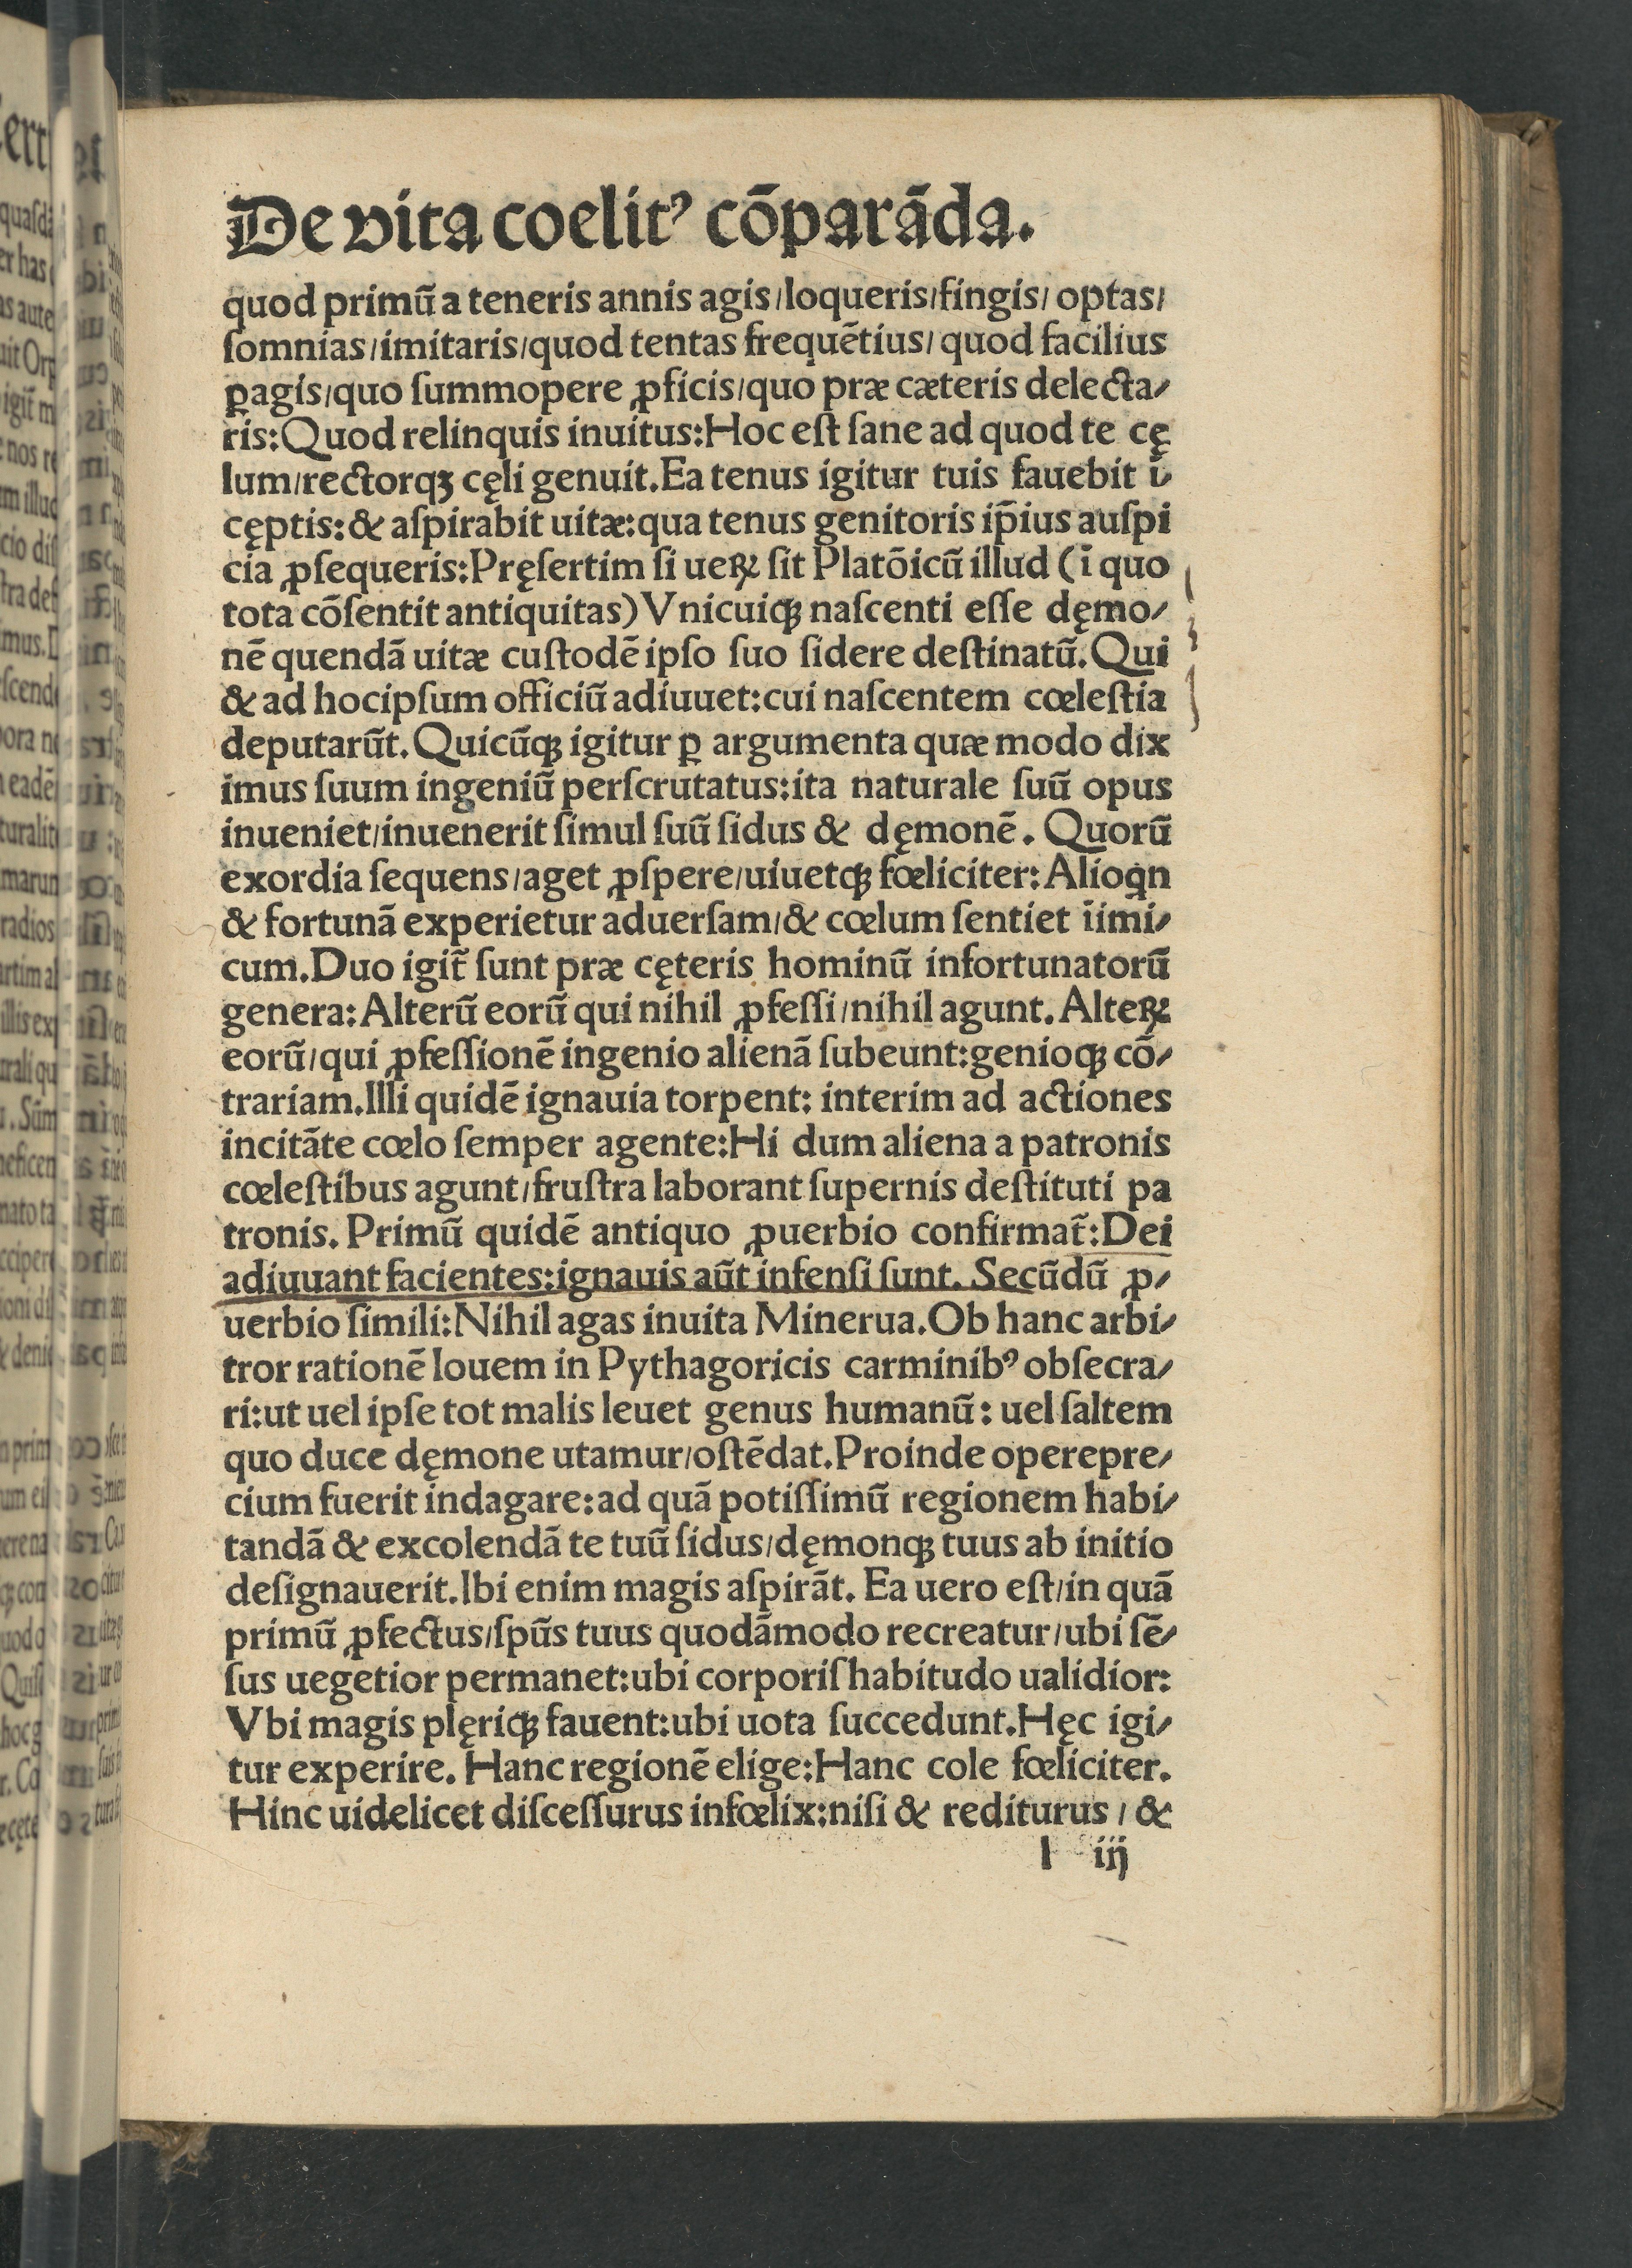 De vita coelitꝰ cōparāda.
quod primū a teneris annis agis/loqueris/fingis/ optas/
ſomnias/imitaris/quod tentas frequētius/ quod facilius
ꝑagis/quo ſummopere ꝓficis/quo præ cæteris delecta/
ris:Quod relinquis inuitus:Hoc eſt ſane ad quod te cę
lum/rectorqꝫ cęli genuit.Ea tenus igitur tuis fauebit ī/
cęptis:& aſpirabit uitæ:qua tenus genitoris ip̄ius auſpi
cia ꝓſequeris:Pręſertim ſi ueꝝ ſit Platōicū illud (ī quo
tota cōſentit antiquitas) Vnicuiqꝫ naſcenti eſſe dęmo/
nē quendā uitæ cuſtodē ipſo ſuo ſidere deſtinatū.Qui
& ad hocipſum officiū adiuuet:cui naſcentem cœleſtia
deputarūt.Quicūqꝫ igitur ꝑ argumenta quæ modo dix
imus ſuum ingeniū perſcrutatus:ita naturale ſuū opus
inueniet/inuenerit ſimul ſuū ſidus & dęmonē. Quorū
exordia ſequens/aget ꝓſpere/uiuetqꝫ fœliciter:Alioqͥn
& fortunā experietur aduerſam/& cœlum ſentiet īimi/
cum.Duo igit̄ ſunt præ cęteris hominū infortunatorū
genera:Alterū eorū qui nihil ꝓfeſſi/nihil agunt.Alteꝝ
eorū/qui ꝓfeſſionē ingenio alienā ſubeunt:genioqꝫ cō/
trariam.Illi quidē ignauia torpent: interim ad actiones
incitāte cœlo ſemper agente:Hi dum aliena a patronis
cœleſtibus agunt/fruſtra laborant ſupernis deſtituti pa
tronis. Primū quidē antiquo ꝓuerbio confirmat̄:Dei
adiuuant facientes:ignauis aūt infenſi ſunt. Secūdū ꝓ/
uerbio ſimili:Nihil agas inuita Minerua.Ob hanc arbi/
tror rationē Iouem in Pythagoricis carminibꝰ obſecra/
ri:ut uel ipſe tot malis leuet genus humanū: uel ſaltem
quo duce dęmone utamur/oſtēdat.Proinde operepre/
cium fuerit indagare:ad quā potiſſimū regionem habi/
tandā & excolendā te tuū ſidus/dęmonqꝫ tuus ab initio
deſignauerit.Ibi enim magis aſpirāt. Ea uero eſt/in quā
primū ꝓfectus/ſpūs tuus quodāmodo recreatur/ubi ſē/
ſus uegetior permanet:ubi corporiſ habitudo ualidior:
Vbi magis plęriqꝫ fauent:ubi uota ſuccedunt.Hęc igi/
tur experire. Hanc regionē elige:Hanc cole fœliciter.
Hinc uidelicet diſceſſurus infœlix:niſi & rediturus / &
l iij